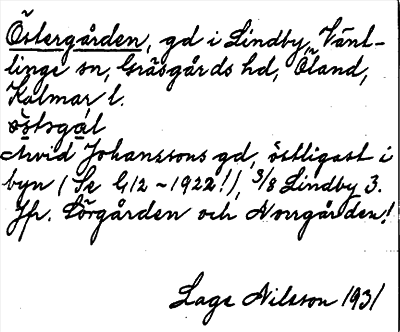 Östergården, gd i Lindby, Vänt-
linge sn, Gräsgårds hd, Öland,
Kalmar l.
östsgal
Arvid Johanssons gd, östligast i
byn (Se G12 ~ 1922!), 3/8 Lindby 3.
Jfr. Sörgården och Norrgården!
Lage Nilsson 1931